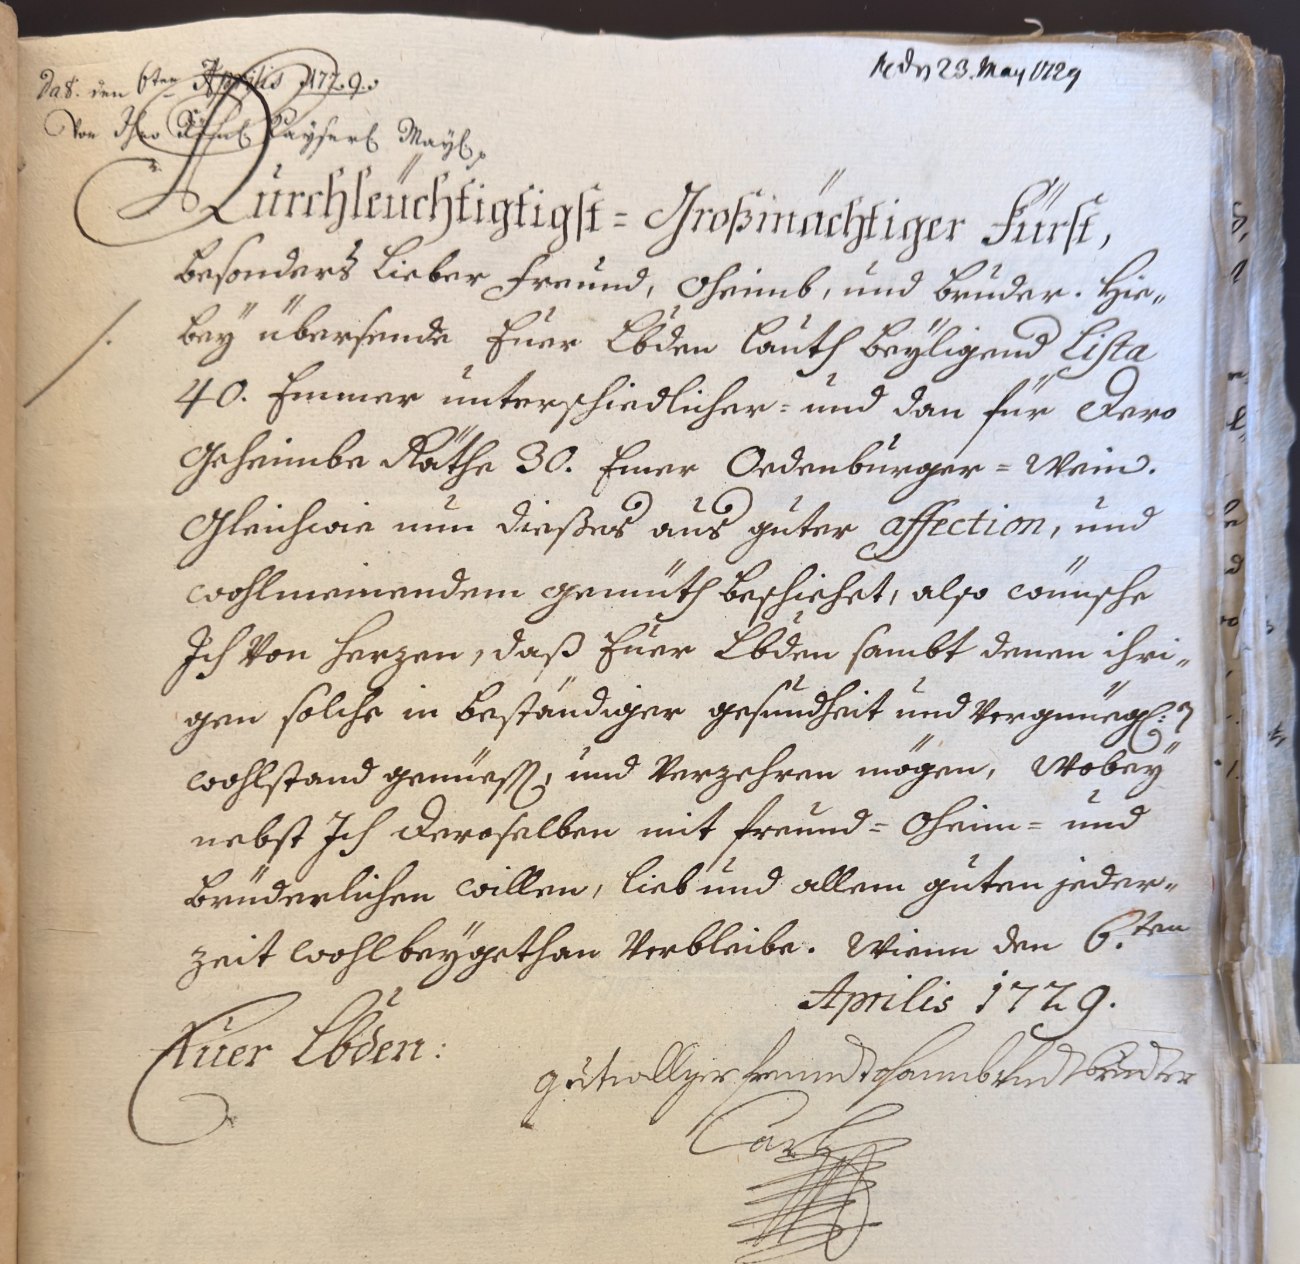 Dat. den 6ten Aprilis 1729.
Von Ihro Röml Kayserl Mayl
r. d. 23. May 1729
Durchleüchtigtigst= Großmächtiger Fürst,
besonders lieber Freund, Oheimb, und Bruder. Hie„
bey übersende Euer Lbden lauth beyligend Lista
40. Emmer unterschiedlicher= und dan für Dero
Geheimbe Räthe 30. Emer Oedenburger= Wein.
Gleichwie nun dießes aus guter affection, und
wohlmeinendem gemüth beschiehet, also wünsche
Ich Von Herzen, daß Euer Lbden sambt denen ihri„
gen solche in beständiger gesundheit und Vergnüegl:n
wohlstand genüess, und Verzehren mögen, Wobey
nebst Ich Deroselben mit freund= Oheim= und
Brüderlichen willen, lieb und allem guten jeder„
zeit wohl beygethan Verbleibe. Wienn den 6.ten
Aprilis 1729.
Euer Lbden:
gutwilliger freund ohaimb und bruder
Carl